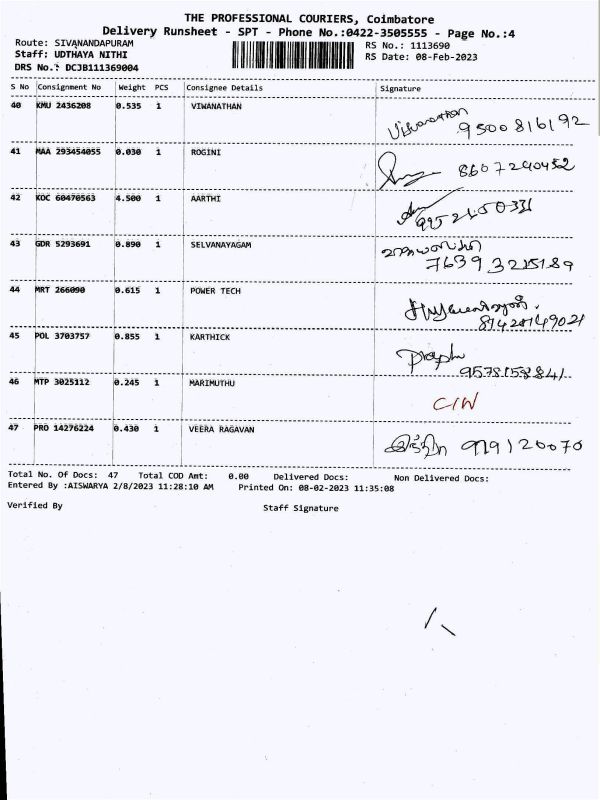 THE PROFESSIONAL COURIERS, Coimbatore
Delivery Runsheet - SPT - Phone No.:0422-3505555 - Page No.:4
Route: SIVANANDAPURAM
RS No.: 1113690
Staff: UDTHAYA NITHI
RS Date: 08-Feb-2023
DRS No.: DCJB111369004
S No Consignment No Weight PCS Consignee Details Signature
40 KMU 2436208 0.535 1 VIWANATHAN
Viswanathan
9500816192
41 MAA 293454055 0.030 1 ROGINI
8607240452
42 KOC 60470563 4.500 1 AARTHI
43 GDR 5293691 0.890 1 SELVANAYAGAM
44 MRT 266090 0.615 1 POWER TECH
45 POL 3703757 0.855 1 KARTHICK
9578158841
46 MTP 3025112 0.245 1 MARIMUTHU
C/W
47 PRD 14276224 0.430 1 VEERA RAGAVAN
Total No. Of Docs: 47 Total COD Amt: 0.00 Delivered Docs: Non Delivered Docs:
Entered By :AISWARYA 2/8/2023 11:28:10 AM Printed On: 08-02-2023 11:35:08
Verified By Staff Signature